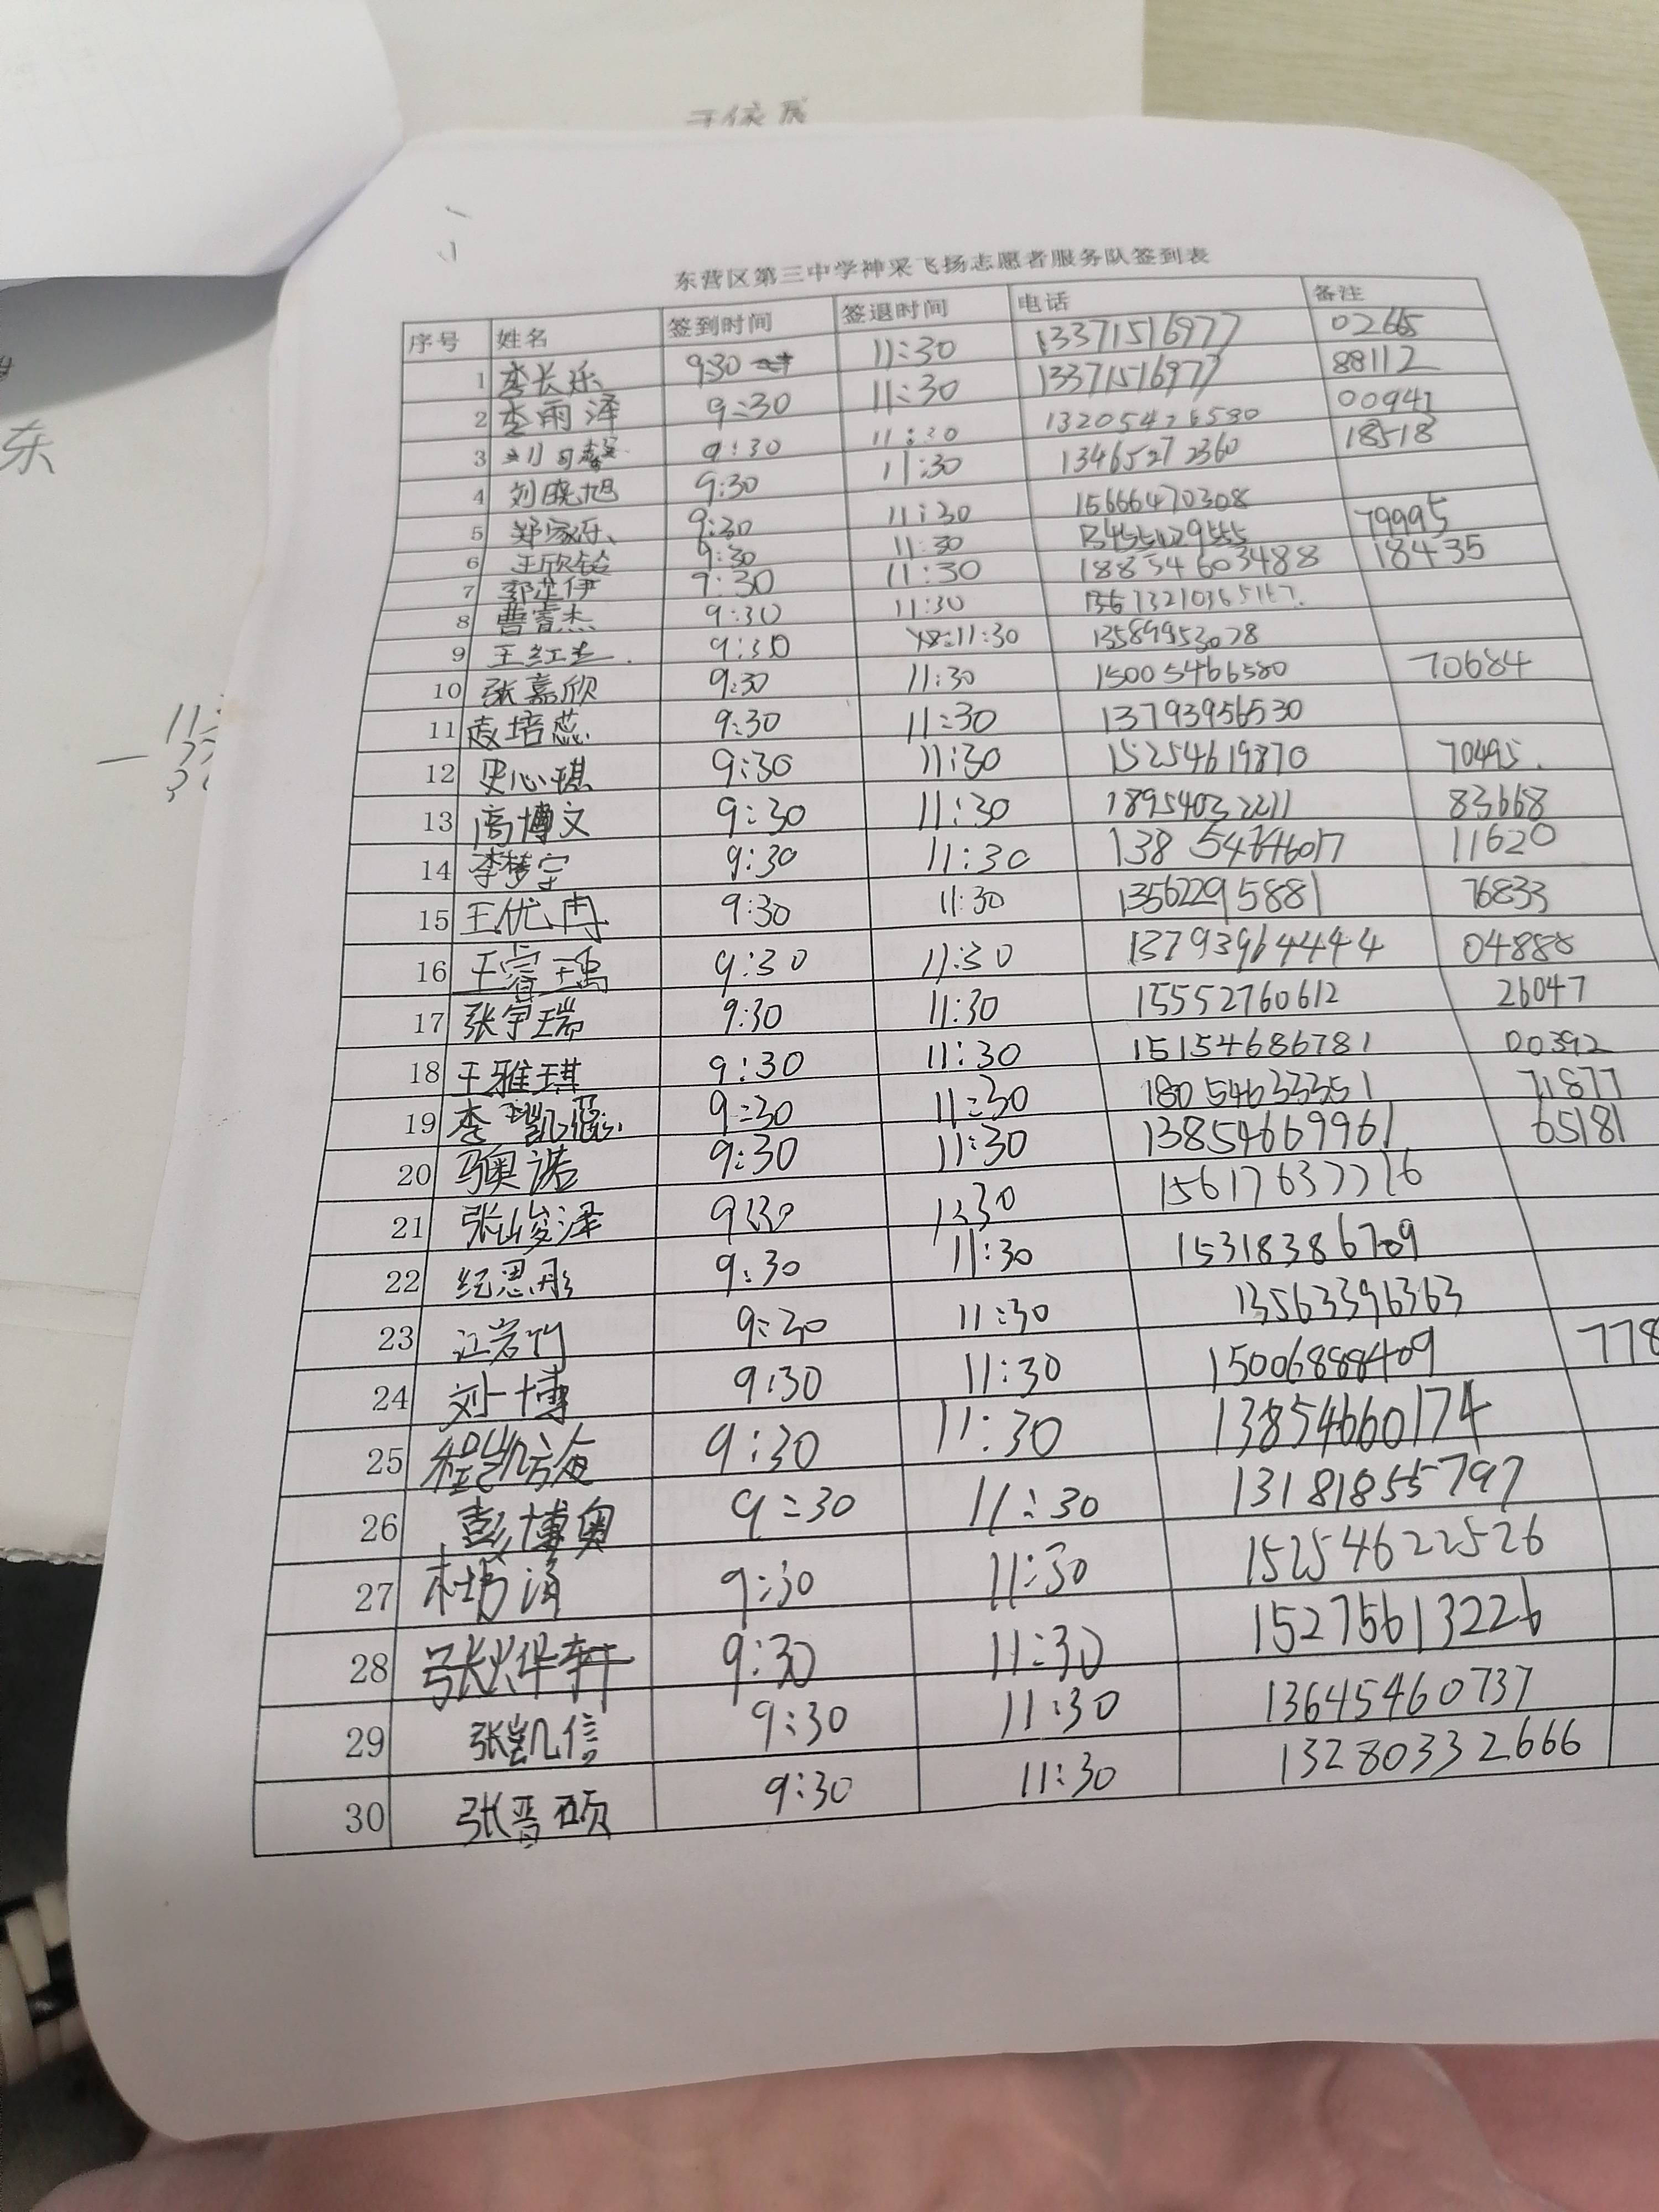 东营区第三中学神采飞扬志愿者服务队签到表
序号 姓名 签到时间 签退时间 电话 备注
1 李长乐 9:30 11:30 13371516977 02665
2 李雨泽 9:30 11:30 13371516977 88112
3 9:30 11:30 00941
4 刘晓旭 9:30 11:30 13465272360 18518
5 郑家乐 9:30 11:30 15666470308
6 王欣铃 9:30 11:30 79995
7 郭芷伊 9:30 11:30 188546603488 18435
8 曹睿杰 9:30 11:30
9 9:30 11:30 13589953028
10 张嘉欣 9:30 11:30 15005466580 70684
11 9:30 11:30 13793956530
12 史心琪 9:30 11:30 15254619870 70495.
13 高博文 9:30 11:30 18954032211 83668
14 李梦宇 9:30 11:30 11620
15 王优冉 9:30 11:30 13562295881 76833
16 王睿瑀 9:30 11:30 13793964444 04888
17 张宇瑞 9:30 11:30 15552760612 26047
18 王雅琪 9:30 11:30 15154686781 00392
19 9:30 11:30 18054633351 71877
20 9:30 11:30 13854669961 65181
21 张峻泽 9:30 11:30
22 纪思彤 9:30 11:30 15318386709
23 江岩竹 9:30 11:30 13563396363
24 刘一博 9:30 11:30 15006888409 778
25 9:30 11:30 13854660174
26 彭博奥 9:30 11:30 13181855797
27 9:30 11:30 15254622526
28 张烨轩 9:30 11:30 15275613226
29 张凯信 9:30 11:30 13645460737
30 张晋硕 9:30 11:30 13280332666
东